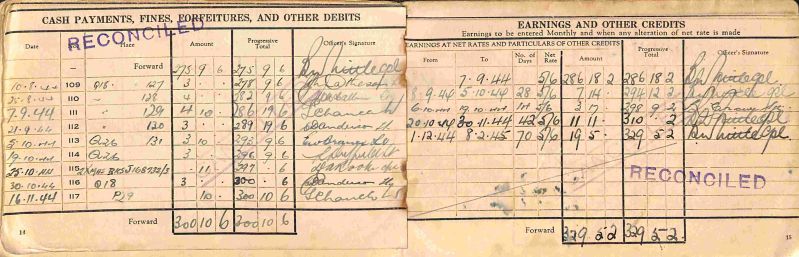 CASH PAYMENTS, FINES, FORFEITURES, AND OTHER DEBITS
RECONCILED
Date No. Place Amount Progressive Total Officer's Signature
Forward 275 9 6 275 9 6
10.8.44 109 Q18 127 3 278 9 6
25.8.44 110 " 128 4 282 9 6
7.9.44 111 " 129 4 10 286 19 6
21.9.44 112 " 130 3 289 19 6
5.10.44 113 Q26 131 3 10 293 9 6
19.10.44 114 Q26 3 296 9 6
25.10.44 115 11 297 6
30.10.44 116 Q18 3 300 6
16.11.44 117 P29 10 300 10 6
Forward 300 10 6 300 10 6
14
EARNINGS AND OTHER CREDITS
Earnings to be entered Monthly and when any alteration of net rate is made
EARNINGS AT NET RATES AND PARTICULARS OF OTHER CREDITS
From To No. of Days Net Rate Amount Progressive Total Officer's Signature
7.9.44 5/6 286 18 2 286 18 2
8.9.44 5.10.44 28 5/6 7 14 294 12 2
6.10.44 19.10.44 14 5/6 3 17 298 9 2
20.10.44 30.11.44 42 5/6 11 11 310 2
1.12.44 8.2.45 70 5/6 19 5 329 5 2
RECONCILED
Forward 329 5 2 329 5 2
15